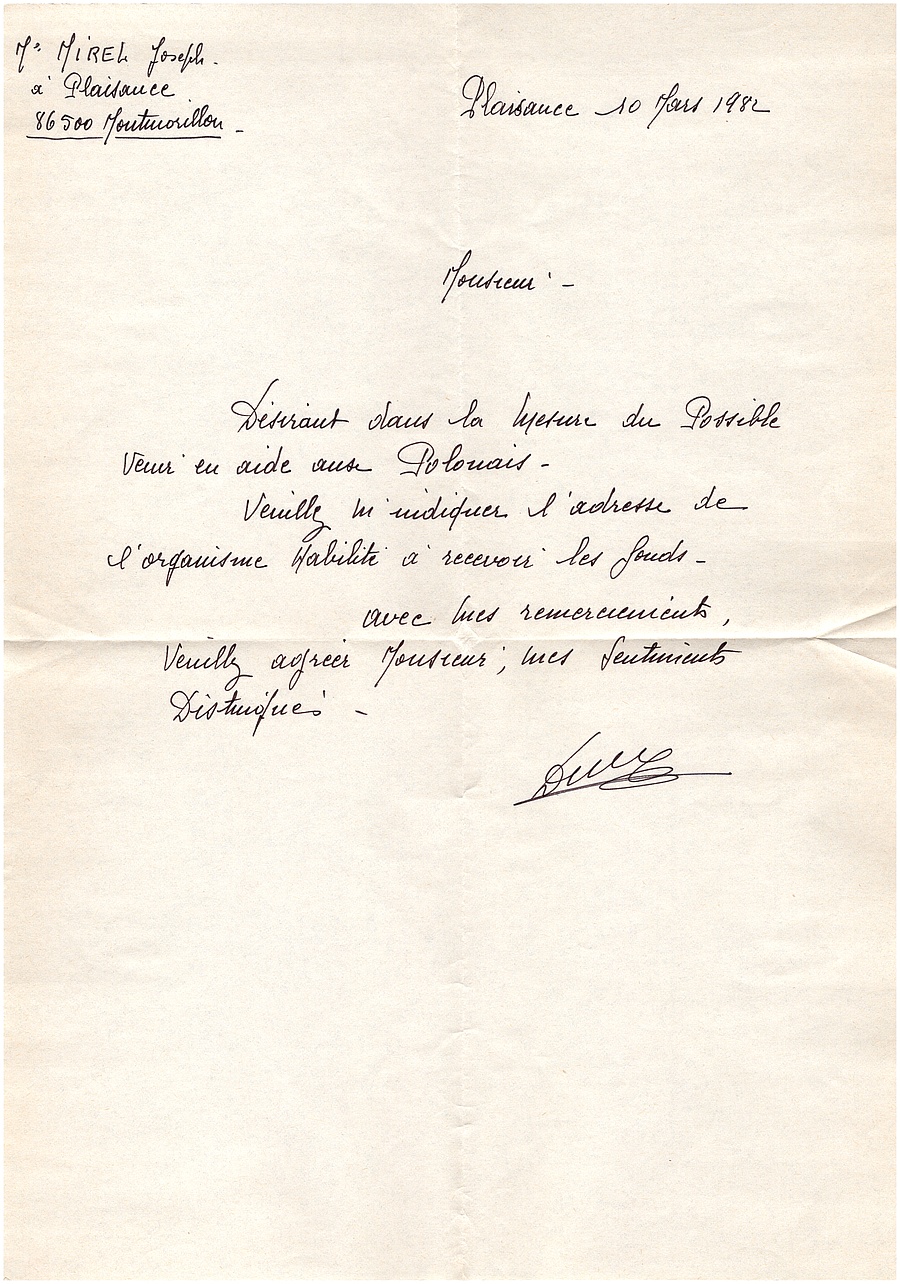 Mr MIREL Joseph.
à Plaisance
86500 Montmorillon -
Plaisance 10 Mars 1982
Monsieur -
Désirant dans la Mesure du Possible
Venir en aide aux Polonais -
Veuillez m'indiquer l'adresse de
l'organisme Habilité à recevoir les fonds -
avec mes remerciements,
Veuillez agréer Monsieur, mes Sentiments
Distingués -